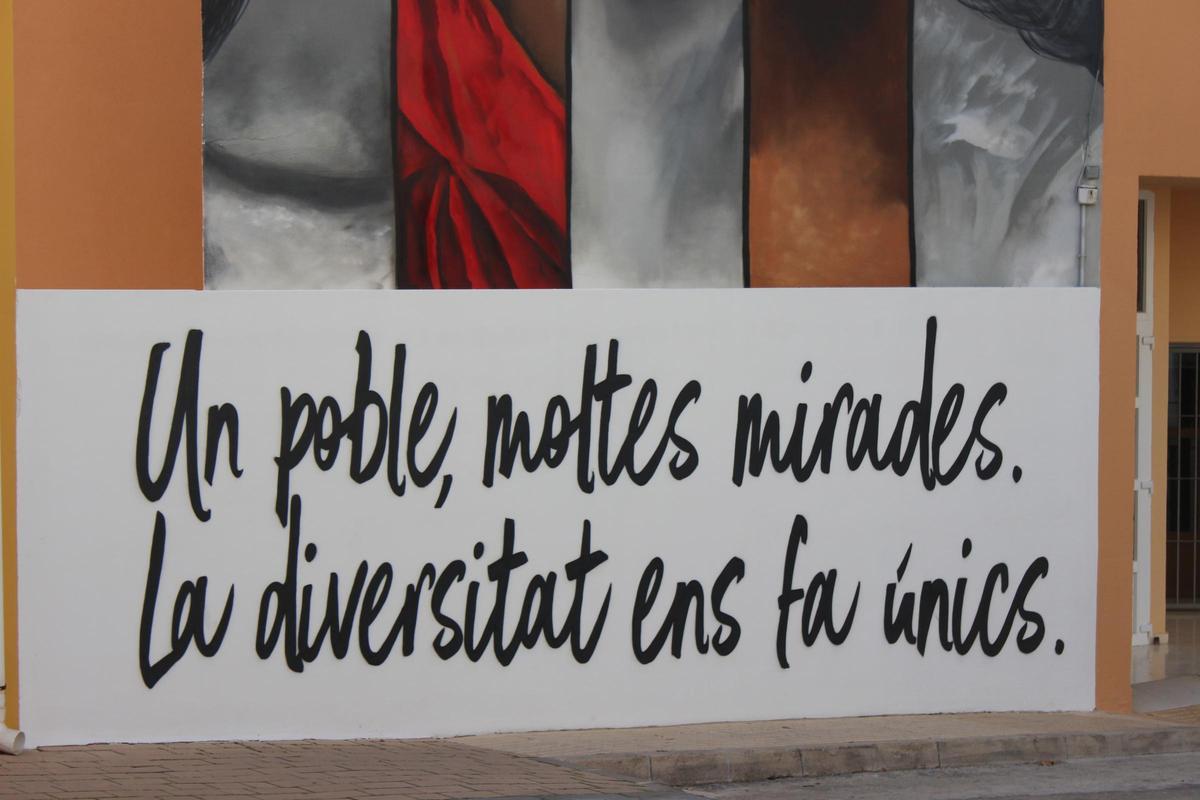 Un poble, moltes mirades.
La diversitat ens fa únics.